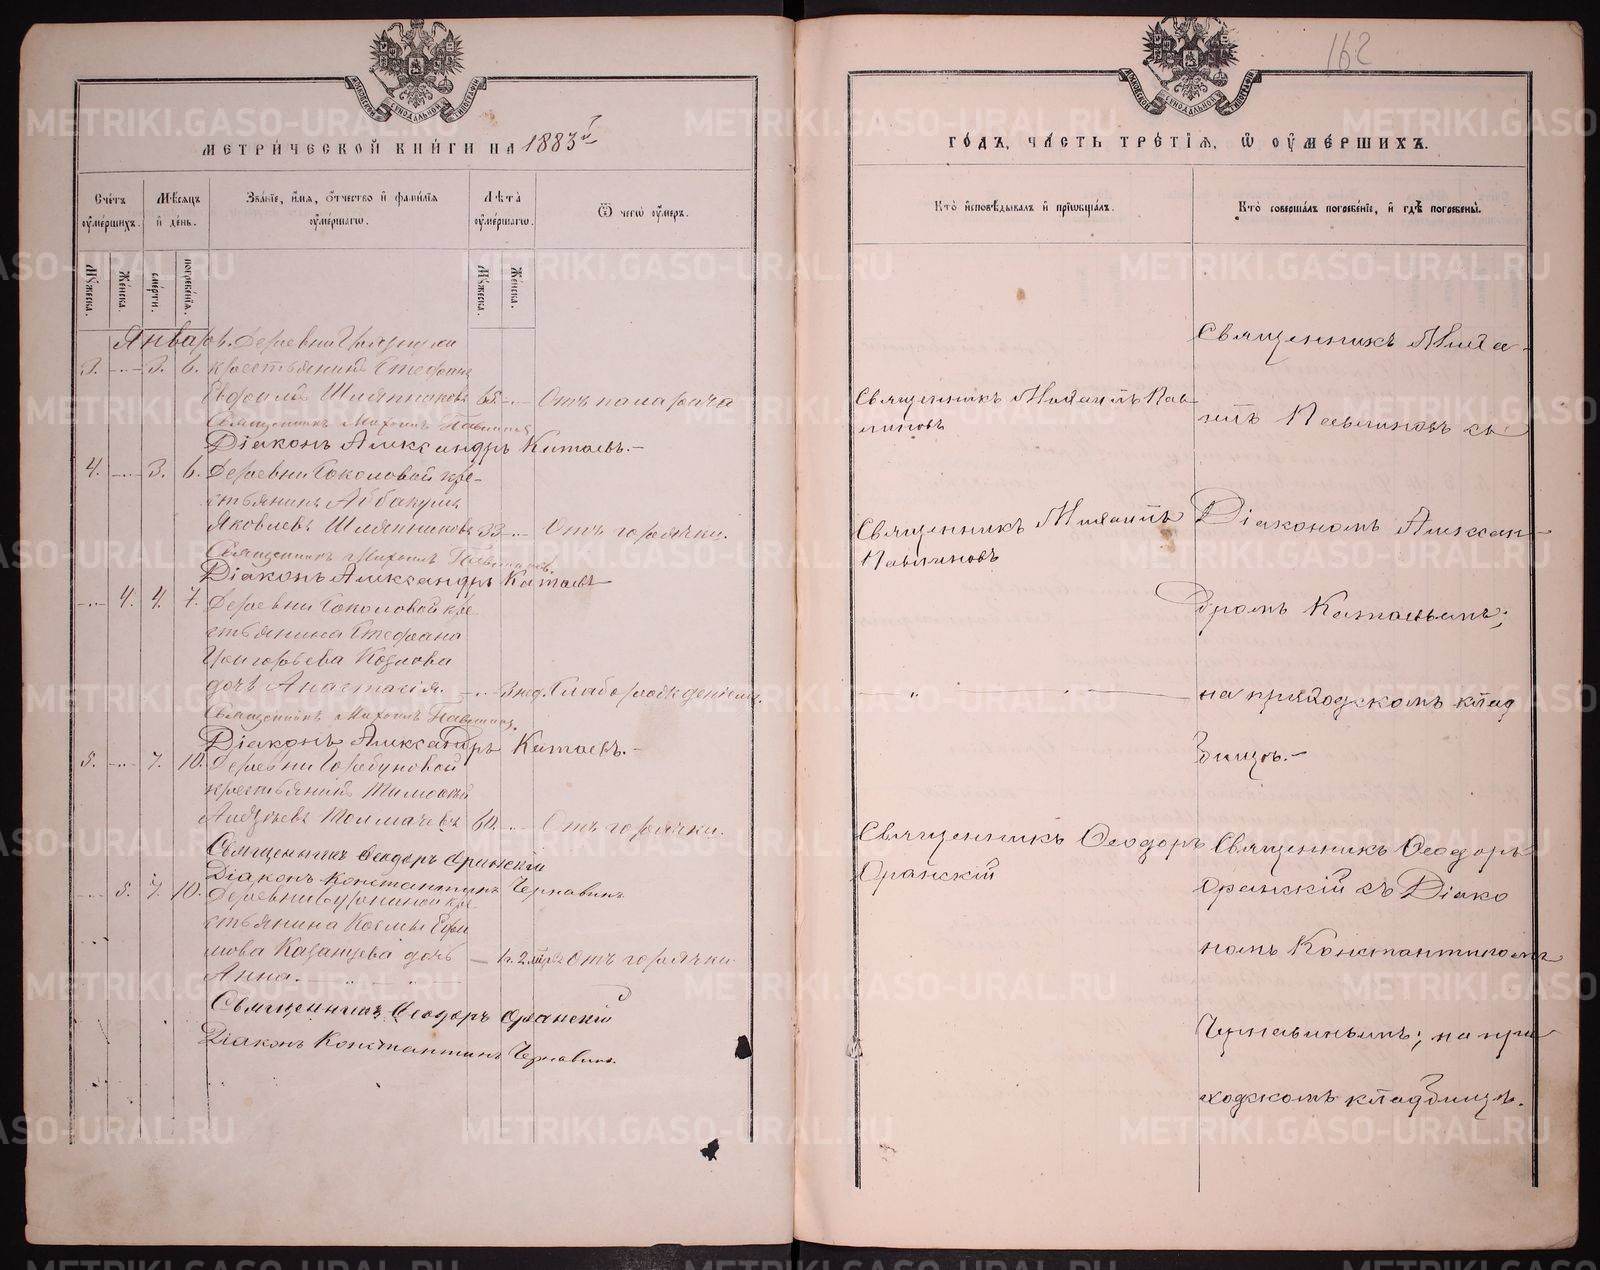 МЕТРИЧЕСКОЙ КНИГИ НА 1883 г.
Счетъ оумершихъ.
Мѣсяцъ и день.
Званіе, имя, отчество и фамилія оумершагω.
Лѣта оумершагω.
Ѿ чегω оумеръ.
Мужеска.
Женска.
смерти.
погребенія.
Мужеска.
Женска.
Январь. Деревни
3. -..- 3. 6. крестьянинъ Стефанъ
Шляпниковъ 65 -..- Отъ паралича
Священникъ Михаилъ Павлиновъ
Діаконъ Александръ Китаевъ.-
4. -..- 3. 6. Деревни Соколовой кре-
стьянинъ Аввакумъ
Яковлевъ Шляпниковъ 33 -..- Отъ горячки.
Священникъ Михаилъ Павлиновъ.
Діаконъ Александръ Китаевъ
-..- 4. 4. 7. Деревни Соколовой кре-
стьянина Стефана
Григорьева Козлова
дочь Анастасія. -..- 3 нед. Слаборожденіемъ.
Священникъ Михаилъ Павлиновъ.
Діаконъ Александръ Китаевъ.-
5. -..- 7. 10. Деревни Горбуновой
крестьянинъ Тимофей
Толмачевъ 60. -..- Отъ горячки.
Священникъ Феодоръ Оранскій
Діаконъ Константинъ Чернавинъ
-..- 5. 7. 10. Деревни кре-
стьянина Космы Ефи
мова Казанцева дочь
Анна. Отъ горячки.
Священникъ Феодоръ Оранскій
Діаконъ Константинъ Чернавинъ.
162
ГОДЪ, ЧАСТЬ ТРЕТІЯ, Ѿ ОУМЕРШИХЪ.
Кто исповѣдывалъ и пріωбщалъ.
Кто совершалъ погребеніе, и гдѣ погребены.
Священникъ Михаилъ Пав-
линовъ
Священникъ Михаилъ
Павлиновъ
Священникъ Феодоръ
Оранскій
Священникъ Миха-
илъ Павлиновъ съ
Діакономъ Алексан-
дромъ Китаевымъ;
на приходскомъ клад
бищѣ.-
Священникъ Феодоръ
Оранскій съ Діако
номъ Константиномъ
Чернавинымъ; на при
ходскомъ кладбищѣ.
METRIKI.GASO-URAL.RU